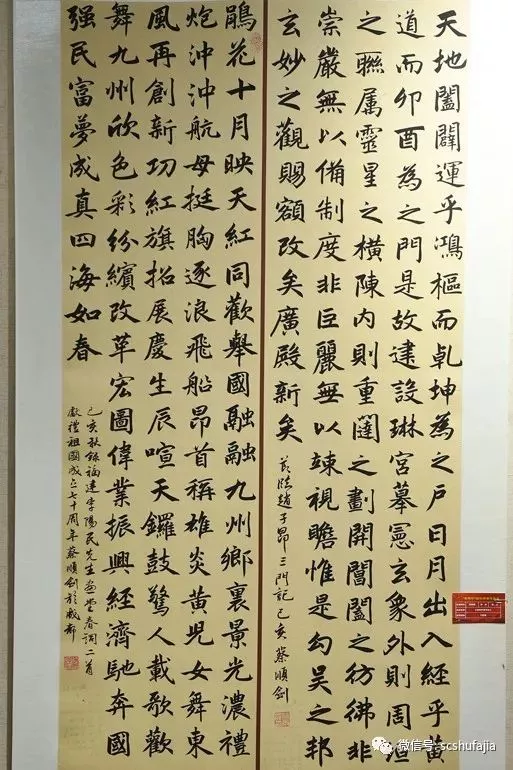 天地闔闢運乎鴻樞而乹坤為之戶日月出入經乎黃
道而卯酉為之門是故建設琳宮摹憲玄象外則周垣
之聮属靈星之橫陳内則重闥之劃開閶闔之彷彿非
崇嚴無以備制度非巨麗無以竦視瞻惟是勾吴之邦
玄妙之觀賜額改矣廣殿新矣
節臨趙子昂三門記己亥蔡順劍
鵑花十月映天紅同歡舉國融融九州鄉裏景光濃禮
炮沖沖航母挺胸逐浪飛船昂首稱雄炎黃児女舞東
風再創新功紅旗招展慶生辰喧天鑼鼓驚人載歌歡
舞九州欣色彩紛繽改革宏圖偉業振興經濟馳奔國
强民富夢成真四海如春
己亥秋録福建李陽民先生畫堂春詞二首
獻禮祖國成立七十周年蔡順劍於成都
微信号: scshufajia